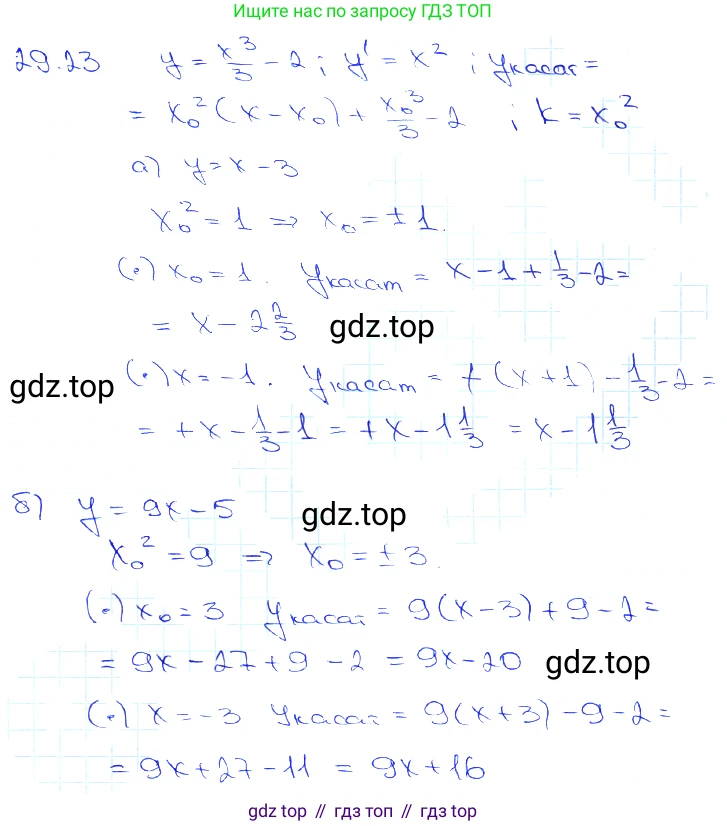 Ищите нас по запросу ГДЗ ТОП
29.23 y = x³/3 - 2 ; y' = x² ; yкасат =
= x₀² (x - x₀) + x₀³/3 - 2 ; k = x₀²
а) y = x - 3
x₀² = 1 => x₀ = ± 1.
(·) x₀ = 1. yкасат = x - 1 + 1/3 - 2 =
= x - 2 2/3
gdz.top
gdz.top
(·) x = -1. yкасат = +(x + 1) - 1/3 - 2 =
= +x - 1/3 - 1 = +x - 1 1/3 = x - 1 1/3
б) y = 9x - 5
gdz.top
x₀² = 9 => x₀ = ± 3.
(·) x₀ = 3 yкасат = 9(x - 3) + 9 - 2 =
= 9x - 27 + 9 - 2 = 9x - 20
gdz.top
(·) x = -3 yкасат = 9(x + 3) - 9 - 2 =
= 9x + 27 - 11 = 9x + 16
gdz top // гдз топ // gdz.top